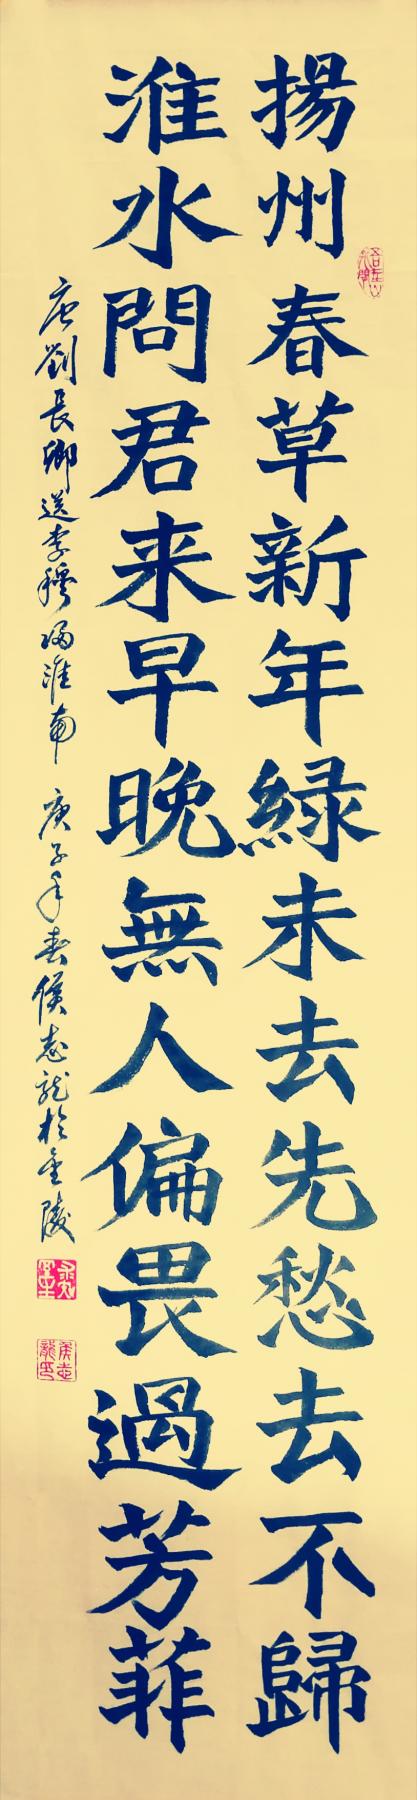 揚州春草新年緑未去先愁去不歸
淮水問君来早晚無人偏畏過芳菲
唐劉長卿送李穆歸淮南 庚子年春侯志龍於金陵
侯志龍印